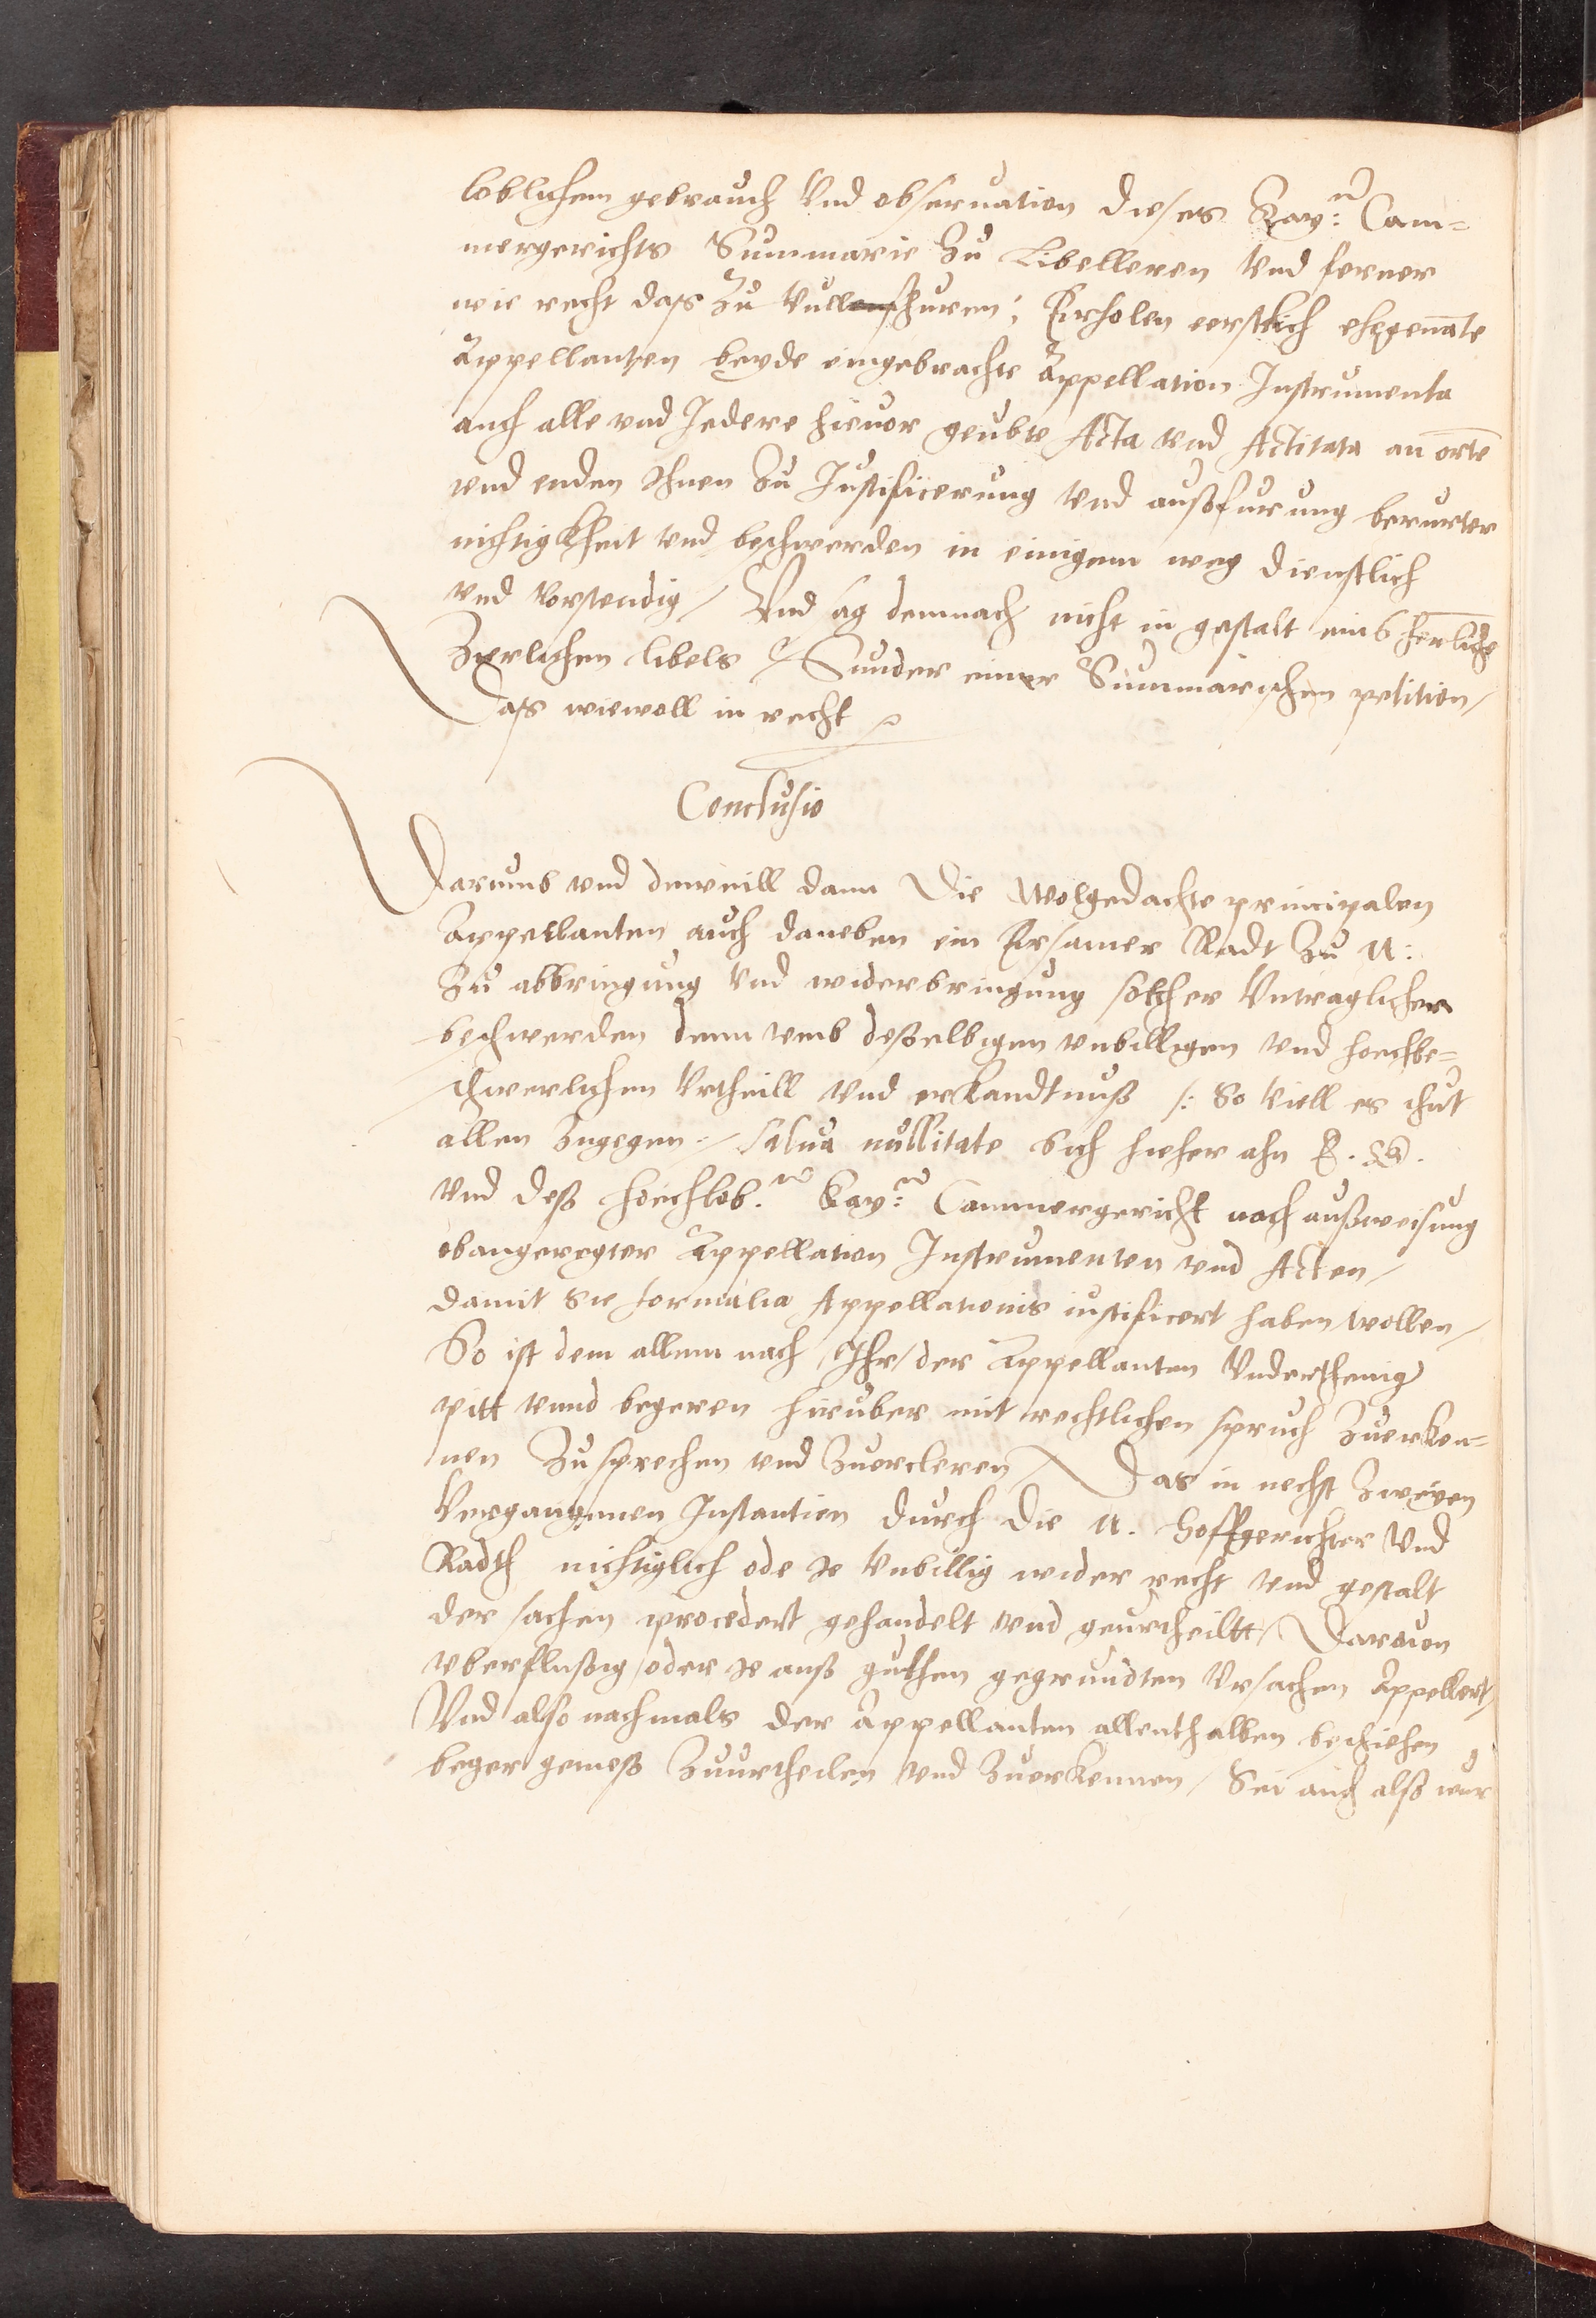 loblichem gebrauch Vnd obseruation dieses Kay:n Cam=
mergerichts Summarie Zu Libelleren vnd ferner
wie recht das Zu Vullenfhuren: Erholen eerstlich ehegenate
Appellanten beyde eingebrachte Appellation Instrumenta
auch alle vnd Jedere hieuor geubte Acta vnd Actitata an orte
vnd enden Ihnen Zu Justificerung vnd außfurung berurter
nichtigkheit vnd beschwerden in einigem weg dienstlich
vnd vorstendig / Vnd sag demnach nicht in gestalt eins herliche
Zierlichen libels / Sunder einer Summarischen petition /
Das wiewoll in recht
Conclusio
Darumb vnd dieweill dann Die Wolgedachte principalen
Appellanten auch daneben ein Ersamer Radt Zu N:
Zu abbringung Vnd widerbringung solcher Vntraglichen
beschwerden denn vmb deßelbigen vnbilligen vnd hoechbe=
schwerlichen Vrtheill vnd erkandtnuß /: So viell es thut
allen Zugegen :/ salua nullitate sich hieher ahn E. G.
vnd deß hoechlob.n Kay:n Cammergericht nach außweisung
obangeregter Appellation Instrumenten vnd Acten /
damit Sie formalia Appellationis iustificert haben wollen /
So ist dem allem nach / Ihr / der Appellanten Vnderthenig
pitt vnnd begeren hirüber mit rechtlichen spruch Zuerken=
nen Zusprechen vnd Zuercleren / Das in nechst Zweyen
Vergangenen Instantien durch die N. Hoffgerichter Vnd
Radth nichtiglich ode Je Vnbillig wider recht vnd gestalt
der sachen procedert gehandelt vnd geurtheiltt / Darouon
vberflußig / oder Je auß guthen gegrundten Vrsachen Appellert /
Vnd also nachmals der Appellanten allenthalben beschehen
beger gemeß Zuurtheilen vnd Zuerkennen / Sei auch alß wur